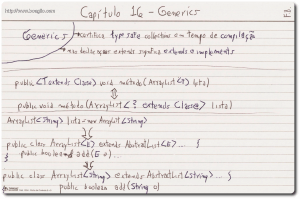 Capítulo 16 - Generics
Generics → certifica type safe collections em tempo de compilação
→ nas declarações extends significa extends e implements
public <T extends Classe> void metodo (ArrayList<T> lista)
public void metodo (ArrayList<? extends Classe> lista)
ArrayList<String> lista = new ArrayList<String>
public class ArrayList<E> extends AbstractList<E> ... {
public boolean add(E o) ...
}
public class ArrayList<String> extends AbstractList<String> ... {
public boolean add(String o)